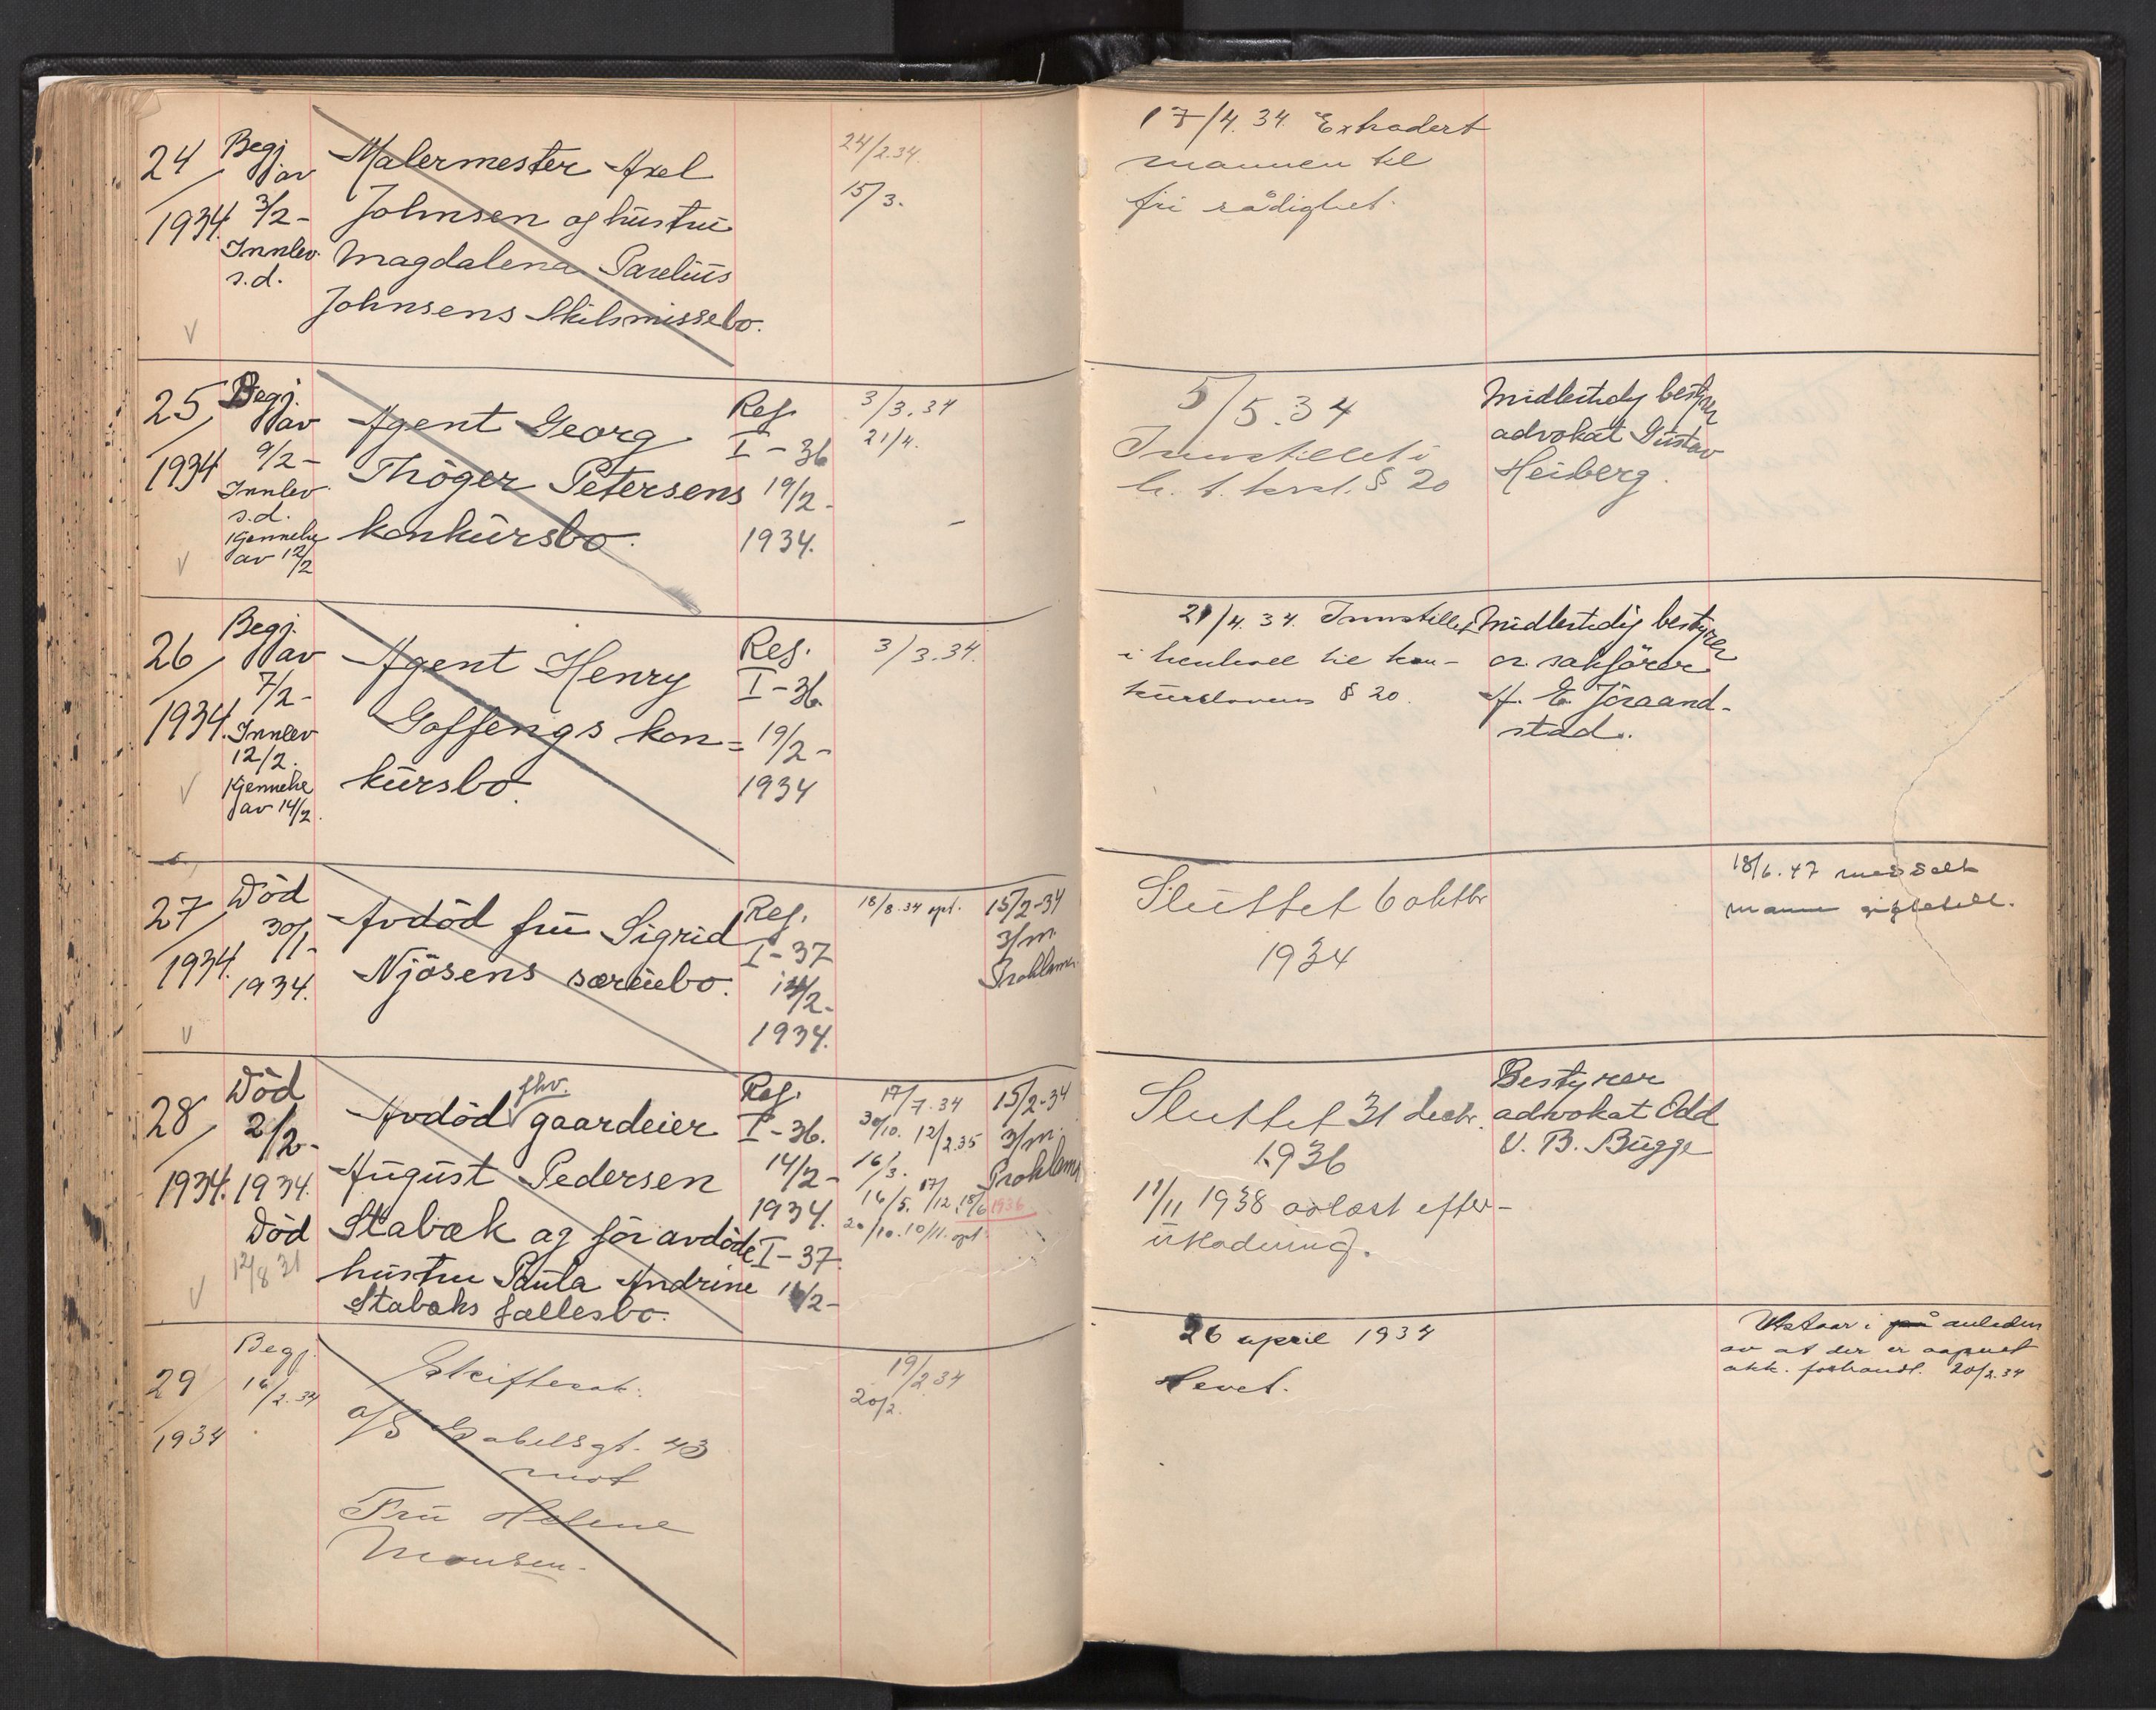 24
1934
Begj.
av
3/2-
Innlev.
s.d.
Malermester Axel
Johnsen og hustru
Magdalena Parelius
Johnsens Skilsmissebo.
24/2.34.
15/3.
17/4. 34. Extradert
mannen til
fri rådighet.
25
1934
Begj.
av
9/2-
Innlev.
s.d.
Kjennelse
av 12/2
Agent Georg
Thöger Petersens
konkursbo.
Reg.
I-36
19/2-
1934.
3/3.34
21/4.
5/5.34
Innstillet i
§ 20
Midlertidig bestyrer
advokat Gustav
Heiberg.
26
1934.
Begj.
av
7/2-
Innlev
12/2.
Kjennelse
av 14/2
Agent Henry
Goffengs kon=
kursbo.
Reg.
I-36
19/2-
1934
3/3.34.
21/4. 34. Innstillet
i henhold til kon-
kurslovens § 20.
Midlertidig bestyrer
or. sakförer
A. E. Jöraand-
stad.
27
1934.
Död
30/1-
1934.
Avdöd fru Sigrid
Njösens særeiebo.
Reg.
I-37
14/2-
1934.
18/8.34 opt.
15/2-34
3/m.
Proklama
Sluttet 6 oktbr
1934
18/6.47 meddelt
mann
28
1934.
Död
2/2-
1934.
Död
12/8 31
fhv.
Avdöd gaardeier
August Pedersen
Stabæk og för avdöde
hustru Paula Andrine
Stabæks fællesbo.
Reg.
I-36.
14/2-
1934.
I-37
16/2-
17/7.34
30/10. 12/2.35
16/3.
16/5. 17/12. 18/6 1936
20/10. 10/11. opt.
15/2-34
3/m.
Proklama
Sluttet 31 decbr.
1936
11/11 1938 avlæst efter-
utlodning.
Bestyrer
advokat Odd
V. B. Bugge
29
1934
Begj.
16/2.34
Skiftesak:
a/S Gabelsgt. 43
mot
Fru Helene
Monsen.
19/2.34
20/2.
26 april 1934
Hevet.
Utstaar i på anledn
av at der er aapnet
akk. forhandl. 20/2.34